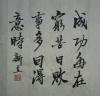 成功每在
窮苦日敗
事多因得
意時